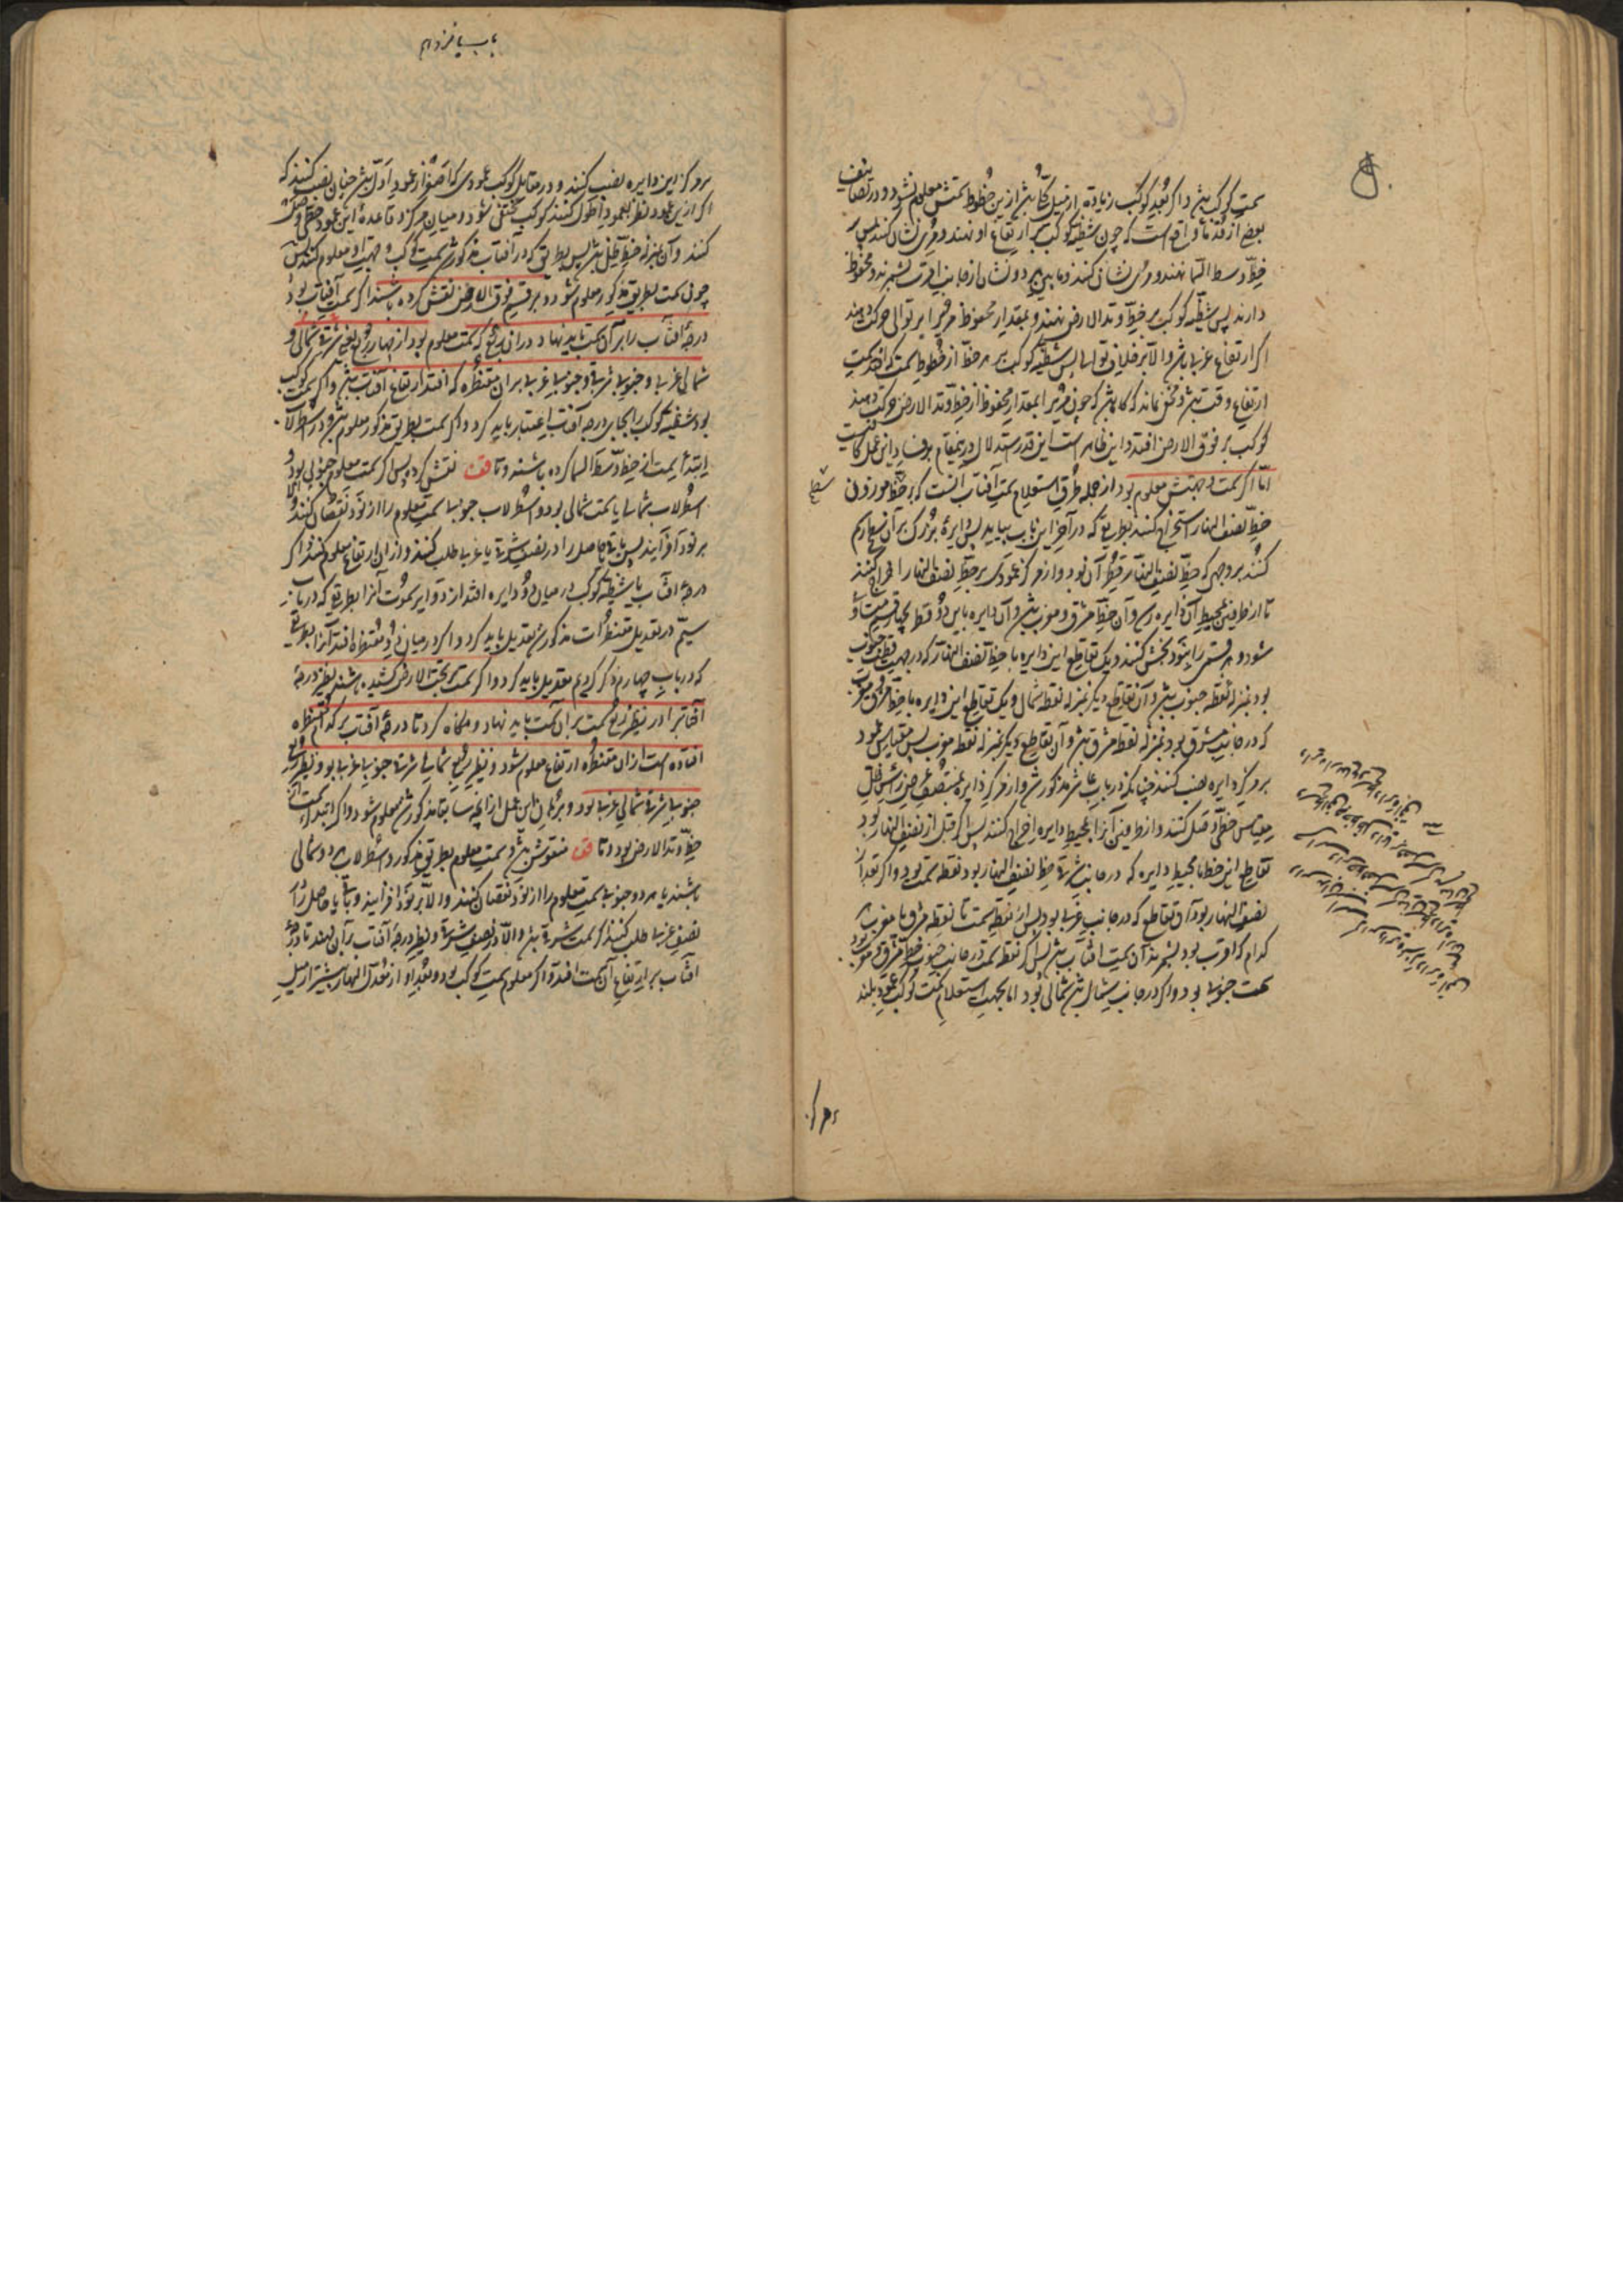 سمت کوکب باشد و اگر بعد کوکب زیاده از میل کلی باشد ازین خطوط سمتش معلوم نشود و در تصانیف
بعضی از قدما واقع است که چون شظیه کوکب بر ارتفاع او نهند و مری نشان کنند پس بر
خط وسط السما نهند و مری نشان کنند و مابین هر دو نشان از جانب اقرب بشمرند و محفوظ
دارند پس شظیه کوکب بر خط وتد الارض نهند و بمقدار محفوظ مری را بر توالی حرکت دهند
اگر ارتفاع غربی باشد و الا بر خلاف توالی پس شظیه کوکب بر هر خط از خطوط سمت که افتد سمت
ارتفاع وقت باشد و مخفی نماند که گاه باشد که چون مری را بمقدار محفوظ از خط وتد الارض حرکت دهند
کوکب بر فوق الارض افتد و این ظاهر است این قدر استدلال درین مقام بر فساد این عمل کافیست
اما اگر سمت و جهتش معلوم نبود از جمله طرق استعلام سمت آفتاب آنست که بر سطح موزون
خط نصف النهار استخراج کنند بطریقی که در آخر این باب بیاید پس دایره بزرگ بر آن سطح رسم
کنند بر وجهی که خط نصف النهار قطر آن بود و از مرکز عمودی بر خط نصف النهار اخراج کنند
تا از طرفین بمحیط آن دایره رسد و آن خط مشرق و مغرب باشد و آن دایره باین دو قطر بچهار قسمت متساوی
شود و هر قسمی را بنود بخش کنند و یک تقاطع این دایره با خط نصف النهار که در جهت قطب جنوب
بود بمنزله نقطه جنوب باشد و آن تقاطع دیگر بمنزله نقطه شمال و یک تقاطع این دایره با خط مشرق و مغرب
که در جانب مشرق بود بمنزله نقطه مشرق باشد و آن تقاطع دیگر بمنزله نقطه مغرب پس مقیاس عمود
بر مرکز دایره نصب کنند چنانکه در باب عاشر مذکور شد و از مرکز دایره بمنتصف عرض رأس ظل
مقیاس خطی وصل کنند و از طرفین آنرا بمحیط دایره اخراج کنند پس اگر قبل از نصف النهار بود
تقاطع این خط با محیط دایره که در جانب شرقی خط نصف النهار بود نقطه سمت بود و اگر بعد از
نصف النهار بود آن تقاطع که در جانب غربی بود پس از نقطه سمت تا نقطه مشرق یا مغرب
کدام که اقرب بود بشمرند آن سمت آفتاب باشد پس اگر نقطه سمت در جانب جنوب خط مشرق و مغرب بود
سمت جنوبی بود و اگر در جانب شمال باشد شمالی بود اما بجهت استعلام سمت کوکب عمود بلند
سطح
بر مرکز
باب پانزدهم
بر مرکز این دایره نصب کنند و در مقابل کوکب عمودی که اقصر از عمود اول باشد چنان نصب کنند که
اگر ازین عمود نظر بعمود اطول کنند کوکب مختفی شود و میان مرکز و قاعده این عمود خطی وصل
کنند و آن بمنزله خط ظل باشد پس بطریق که در آفتاب مذکور شد سمت کوکب و جهت او معلوم کنند پس
چون سمت بطریق مذکور معلوم شود و بر قسم فوق الارض نقش کرده باشند اگر سمت آفتاب بود
درجه آفتاب را بر آن سمت باید نهاد در آن ربع که سمت معلوم بود از چهار ربع یعنی شرقی شمالی و
شمالی غربی و جنوبی شرقی و جنوبی غربی بر آن مقنطره که افتد ارتفاع آفتاب باشد و اگر سمت کوکب
بود شظیه کوکب را بجای درجه آفتاب اعتبار باید کرد و اگر سمت بطریق مذکور معلوم شود و در اسطرلاب
ابتدای سمت از خط وسط السما کرده باشند و تا قف نقش کرده پس اگر سمت معلوم جنوبی بود و
اسطرلاب شمالی یا سمت شمالی بود و اسطرلاب جنوبی سمت معلوم را از نود نقصان کنند و الا
بر نود افزایند پس باقی یا حاصل را در نصف شرقی یا غربی طلب کنند و از آن ارتفاع معلوم کنند و اگر
درجه آفتاب یا شظیه کوکب در میان دو دایره افتد از دوایر سموت آنرا بطریقی که در باب
سیم در تعدیل مقنطرات مذکور شد تعدیل باید کرد و اگر در میان دو مقنطره افتد آنرا بطریقی
که در باب چهارم ذکر کردیم تعدیل باید کرد و اگر سمت بر تحت الارض کشیده باشند نظیر درجه
آفتاب را در نظیر ربع سمت بر آن سمت باید نهاد و نگاه کرد تا درجه آفتاب بر کدام مقنطره
افتاده است از آن مقنطره ارتفاع معلوم شود و نظیر ربع شمالی شرقی جنوبی غربی بود و نظیر ربع
جنوبی شرقی شمالی غربی بود و برهان این عمل از آنچه سابقا مذکور شد معلوم شود و اگر ابتدای سمت از
خط وتد الارض بود و تا قف منقوش باشد و سمت معلوم بطریق مذکور و اسطرلاب هر دو شمالی
باشند یا هر دو جنوبی سمت معلوم را از نود نقصان کنند و الا بر نود افزایند و باقی یا حاصل را
در نصف غربی طلب کنند اگر سمت شرقی باشد و الا در نصف شرقی و نظیر درجه آفتاب بر آن نهند تا درجه
آفتاب بر ارتفاع آن سمت افتد و اگر معلوم سمت کوکب بود و بعد او از معدل النهار بیشتر از میل